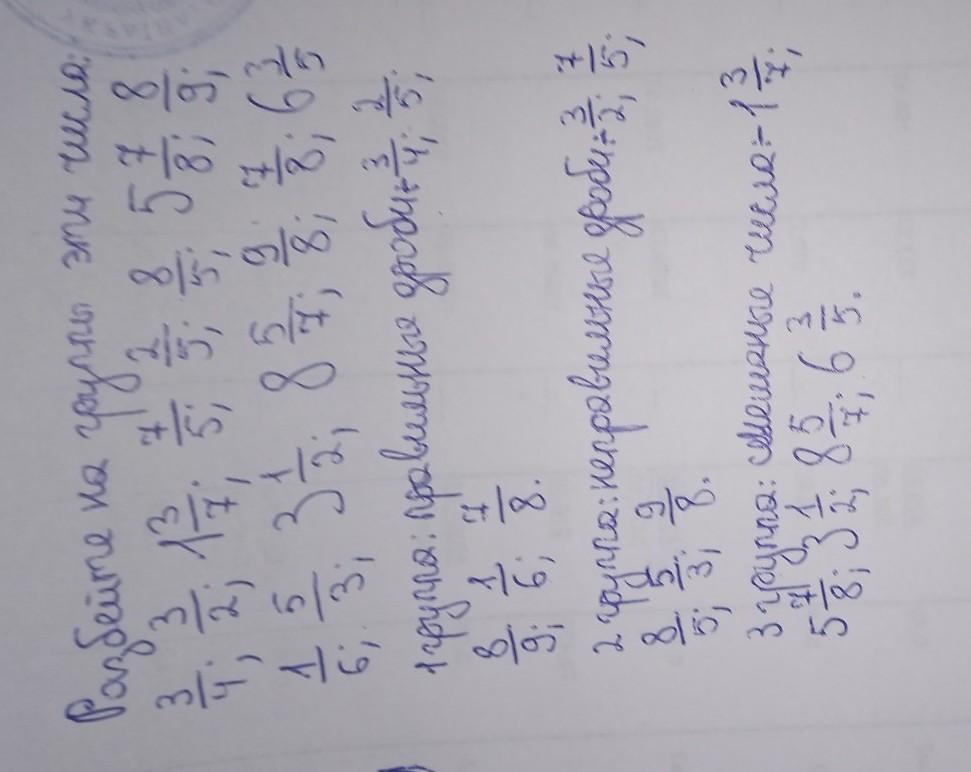 Разбейте на группы эти числа:
3/4; 3/2; 1 3/7; 7/5; 2/5; 8/5; 5 7/8; 8/9;
1/6; 5/3; 3 1/2; 8 5/7; 9/8; 7/8; 6 3/5
1 группа: правильные дроби: 3/4; 2/5;
8/9; 1/6; 7/8.
2 группа: неправильные дроби: 3/2; 7/5;
8/5; 5/3; 9/8.
3 группа: смешаные числа:- 1 3/7;
5 7/8; 3 1/2; 8 5/7; 6 3/5.